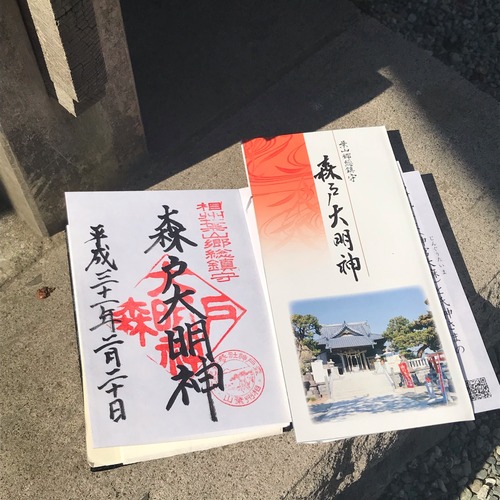 相州葉山郷総鎮守
森戸大明神
平成三十一年二月二十日
森戸
大明神
葉山郷総鎮守
森戸大明神